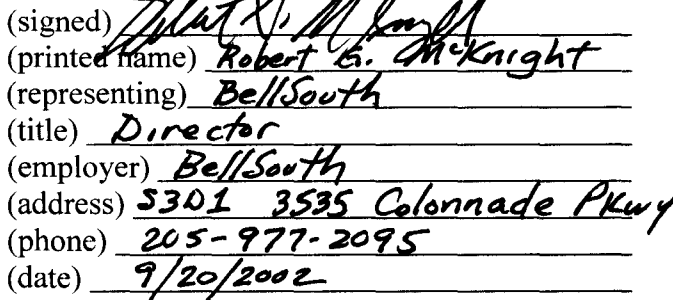 (signed)
(printed name) Robert G. McKnight
(representing) BellSouth
(title) Director
(employer) BellSouth
(address) S3D1 3535 Colonnade Pkwy
(phone) 205-977-2095
(date) 9/20/2002